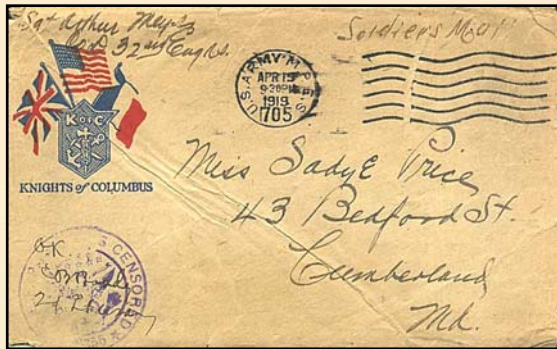 Sgt Arthur
32nd Engrs.
Soldier's Mail
U.S. ARMY M.P.E.S.
APR 15
9-30PM
1919
705
K of C
KNIGHTS of COLUMBUS
Miss Sadye Price
43 Bedford St.
Cumberland
Md.
O.K.
CENSORED